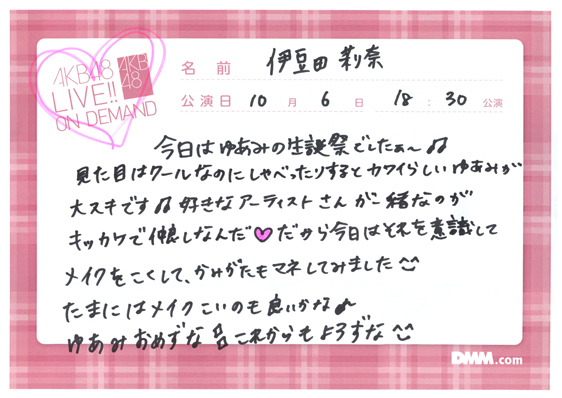 AKB48
LIVE!!
ON DEMAND
AKB
48
名前 伊豆田 莉奈
公演日 10月6日 18:30公演
今日はゆあみの生誕祭でしたぁ〜♫
見た目はクールなのにしゃべったりするとカワイらしいゆあみが
大スキです♫好きなアーティストさんが一緒なのが
キッカケで仲良しなんだ♥だから今日はそれを意識して
メイクをこくして、かみがたもマネしてみました
たまにはメイクこいのも良いかな♪
ゆあみおめずなこれからもよろずな
DMM.com